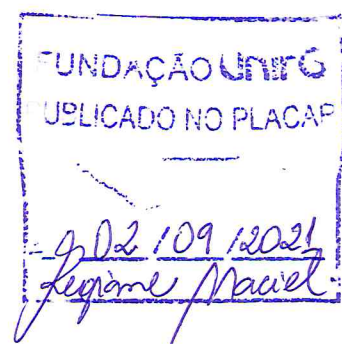 FUNDAÇÃO UnirG
PUBLICADO NO PLACAR
02/09/2021
Regiane Maciel